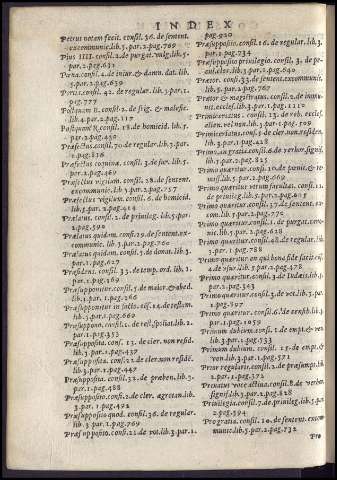 INDEX
Petrus notam fecit. consil. 36. de sentent.
excommunic. lib. 5. par. 2. pag. 769
Pius IIII. consil. 2. de purgat. vulg. lib. 5.
par. 2. pag. 631
Pœna. consil. 4. de iniur. & damn. dat. lib.
5. par. 2. pag. 639
consil. 42. de regular. lib. 3. par. 1.
pag. 777
consil. 2. de frig. & malefic.
lib. 4. par. 2. pag. 117
Postquam R. consil. 18. de homicid. lib. 5.
par. 2. pag. 450
Præfectus consil. 70. de regular. lib. 3. par.
1. pag. 816
Præfectus vigilum. consil. 3. de iur. lib. 5.
par. 2. pag. 469
Præfectus vigilum. consil. 28. de sentent.
excommunic. lib. 5. par. 2. pag. 757
Præfectus vigilum. consil. 6. de homicid.
lib. 5. par. 2. pag. 414
Prælatus. consil. 2. de priuileg. lib. 5. par.
2. pag. 590
Prælatus quidam. consil. 29. de sentent. ex
communic. lib. 5. par. 2. pag. 760
Prælatus quidam. consil. 5. de donat. lib. 3.
par. 2. pag. 627
Præsidens. consil. 35. de temp. ord. lib. 1.
par. 1. pag. 169
Præsupponitur. consil. 5. de maior. & obed.
lib. 1. par. 1. pag. 266
Præsupponitur in facto. consil. 14. de testam.
lib. 3. par. 1. pag. 660
Præsuppono. consil. 1. de rest. spoliat. lib. 2.
par. 1. pag. 353
Præsupposita. cons. 13. de cler. non resid.
lib. 3. par. 1. pag. 437
Præsupposita. consil. 22. de cler. non resid.
lib. 3. par. 1. pag. 447
Præsupposita. consil. 32. de præben. lib. 3.
par. 1. pag. 488
Præsupposita. consil. 2. de cler. ægrotan. lib.
3. par. 1. pag. 492
Præsupposito quod. consil. 36. de regular.
lib. 3. par. 1. pag. 769
Præsupposito. consil. 21. de vot. lib. 3. par. 1.
pag. 920
Præsupposito. consil. 16. de regular. lib. 3.
par. 1. pag. 734
Præsupposito priuilegio. consil. 3. de
lib. 3. par. 2. pag. 640
Prætor. consil. 33. de sentent. excommunic.
lib. 5. par. 2. pag. 767
Prætor & magistratus. consil. 2. de immunit.
eccles. lib. 3. par. 1. pag. 1110
consil. 13. de reb. eccles.
non alien. lib. 3. par. 1. pag. 509
consil. 5. de cler. non residen.
lib. 3. par. 1. pag. 428
Primam. consil. 6. de verbor. signif.
lib. 5. par. 2. pag. 825
Primo quæritur. consil. 10. de pœnit. & re
miss. lib. 5. par. 2. pag. 669
Primo quæritur vtrum facultas. consil. 11.
de priuileg. lib. 5. par. 2. pag. 605
Primo quæritur. consil. 37. de sentent. ex
com. lib. 5. par. 2. pag. 772
Primo quæritur. consil. 1. de purgat. canonic.
lib. 5. par. 2. pag. 628
Primo quæritur. consil. 48. de regular. lib.
3. par. 1. pag. 788
Primo quæritur an qui bona fide
lib. 5. par. 2. pag. 478
Primo quæritur. consil. 3. de lib. 5.
par. 2. pag. 361
Primo quæritur. consil. 3. de vot. lib. 3. par.
1. pag. 897
Primo quæritur. consil. 6. de censib. lib. 3.
par. 1. pag. 1059
Primum dubium. consil. 2. de empt. & ven
lib. 3. par. 1. pag. 553
Primum dubium. consil. 15. de empt. &
ven. lib. 3. par. 1. pag. 571
Prior regularis. consil. 2. de præsumpt. lib.
2. par. 1. pag. 372
consil. 8. de verbor.
signif. lib. 5. par. 2. pag. 828
Priuilegia. consil. 7. de priuileg. lib. 5. par.
2. pag. 594
consil. 10. de senten. excom
munic. lib. 5. par. 2. pag. 732
Pro